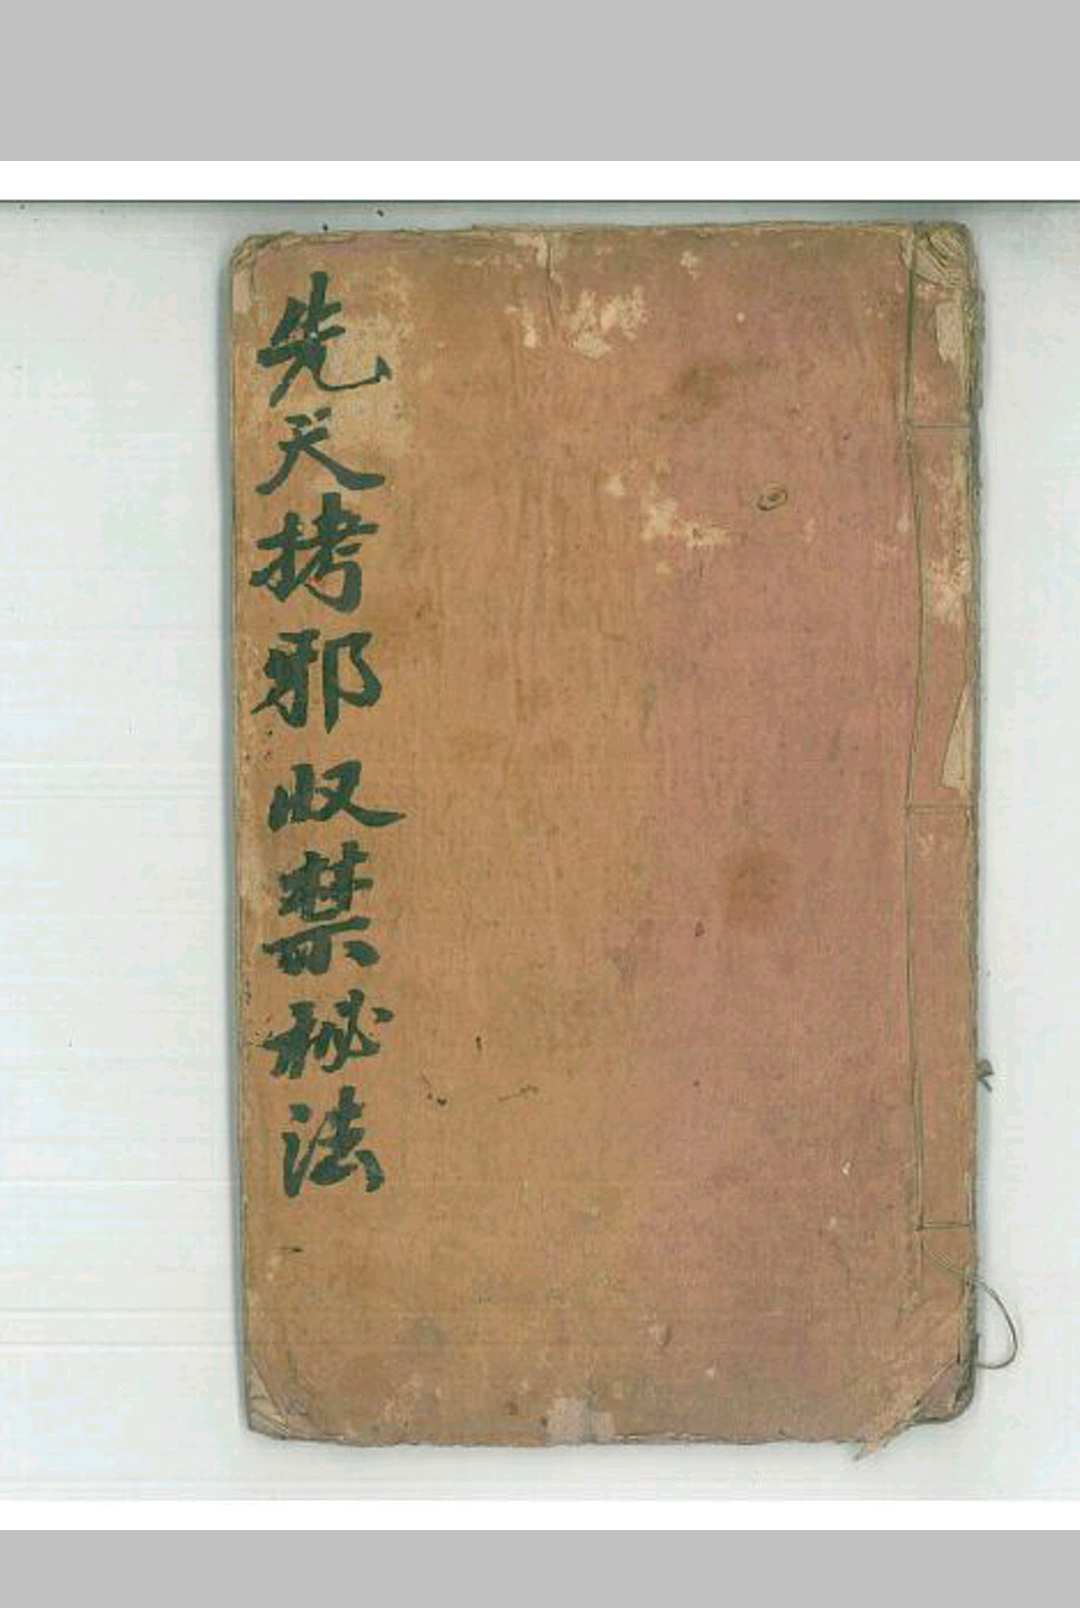 先天拷邪収禁秘法